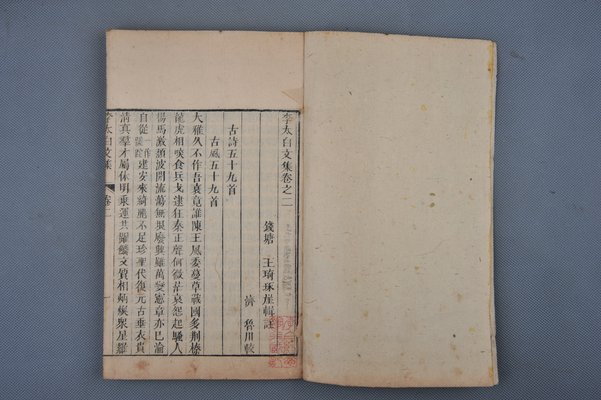 李太白文集卷之二
錢塘 王琦琢崖輯註
濟 魯川較
古詩五十九首
古風五十九首
大雅久不作吾衰竟誰陳王風委蔓草戰國多荆榛
龍虎相啖食兵戈逮狂秦正聲何微茫哀怨起騷人
揚馬激頹波開流蕩無垠廢興雖萬變憲章亦已淪
自從一作建安來綺麗不足珍聖代復元古垂衣貴
清真羣才屬休明乘運共躍鱗文質相炳煥衆星羅
李太白文集 卷二